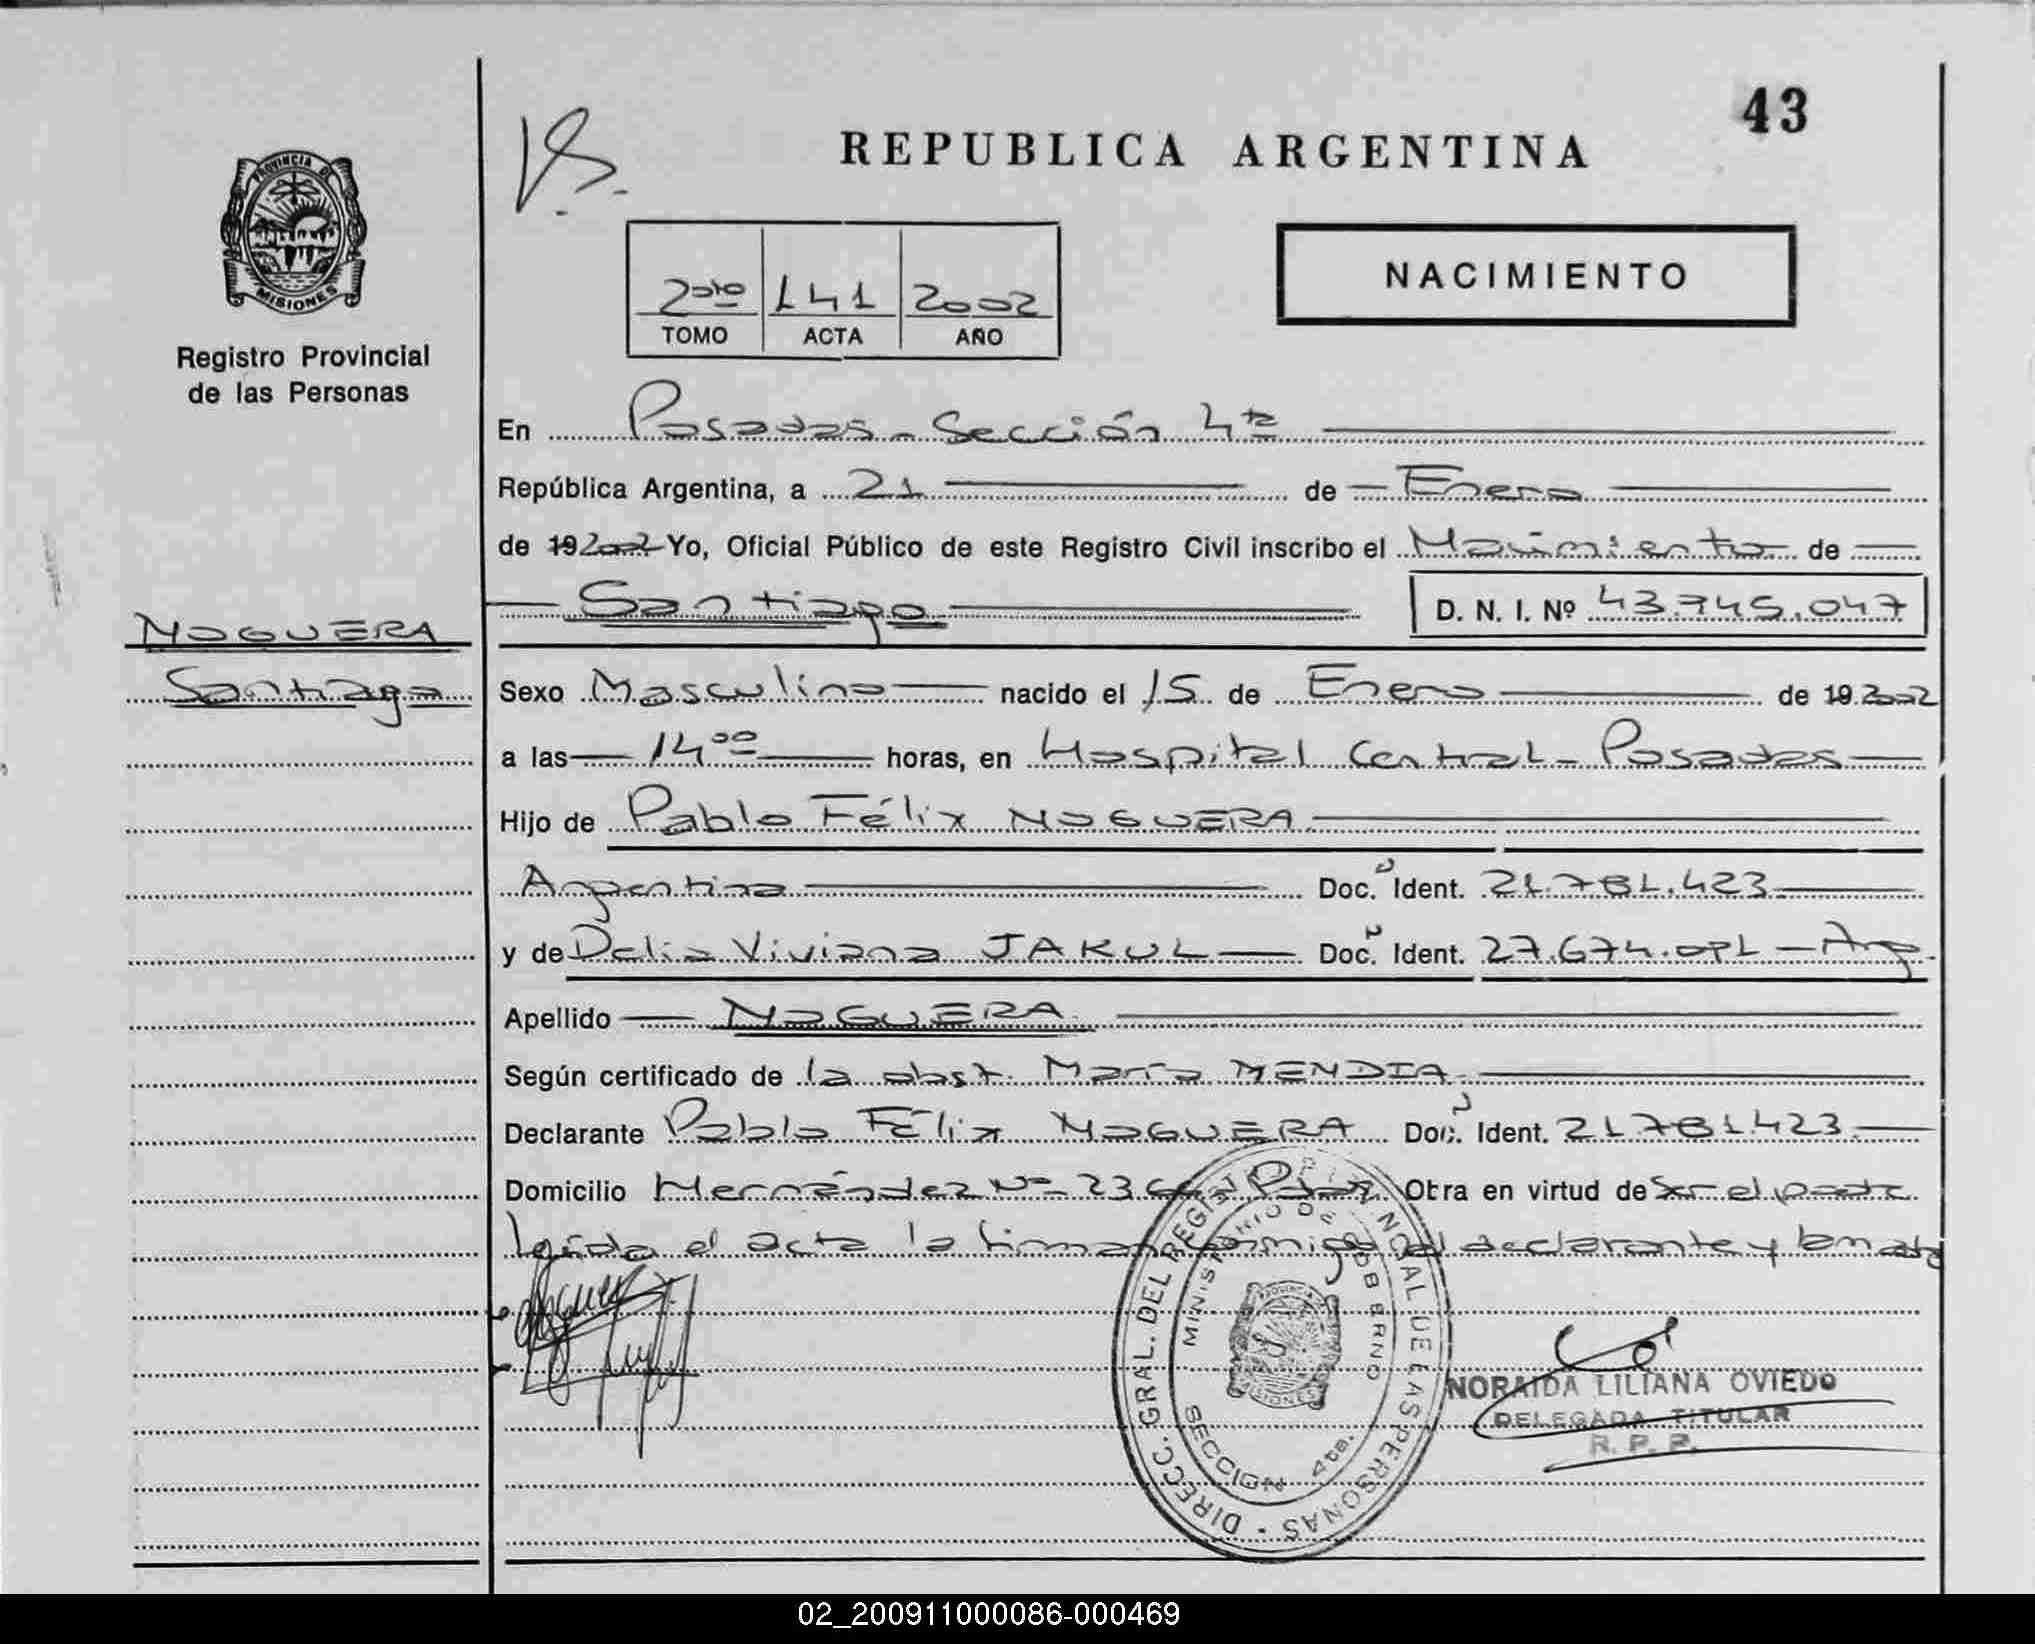 43
REPUBLICA ARGENTINA
PROVINCIA DE
MISIONES
Registro Provincial
de las Personas
2do 141 2002
TOMO ACTA AÑO
NACIMIENTO
En Posadas - Sección 4ta
República Argentina, a 21 de Enero
de 19 2002 Yo, Oficial Público de este Registro Civil inscribo el Nacimiento de
Santiago D. N. I. Nº 43.745.047
NOGUERA
Santiago
Sexo Masculino nacido el 15 de Enero de 19 2002
a las 14 00 horas, en Hospital Central - Posadas
Hijo de Pablo Félix NOGUERA
Argentina Doc. Ident. 21.781.423
y de Delia Viviana JAKUL Doc. Ident. 27.674. - Arg.
Apellido NOGUERA
Según certificado de la obst. María MENDIA
Declarante Pablo Félix NOGUERA Doc. Ident. 21781423
Domicilio Hernández Nº 23 Obra en virtud de ser el padre
leída el acta la firman conmigo el declarante y la madre
DIRECC. GRAL. DEL REGIST. PROVINCIAL DE LAS PERSONAS
MINISTERIO DE GOBIERNO
SECCION 4ta.
NORAIDA LILIANA OVIEDO
DELEGADA TITULAR
R. P. P.
02_200911000086-000469